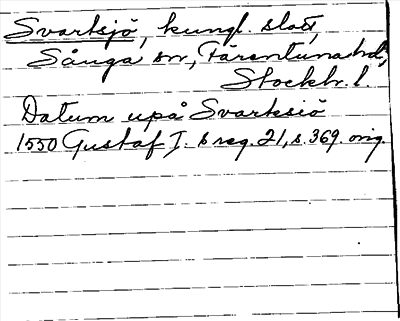 Svartsjö, kungl. slott,
Sånga sn, Färentuna hd,
Stockh. l.
Datum upå Svartesiö
1550 Gustaf I. s reg. 21, s. 369. orig.